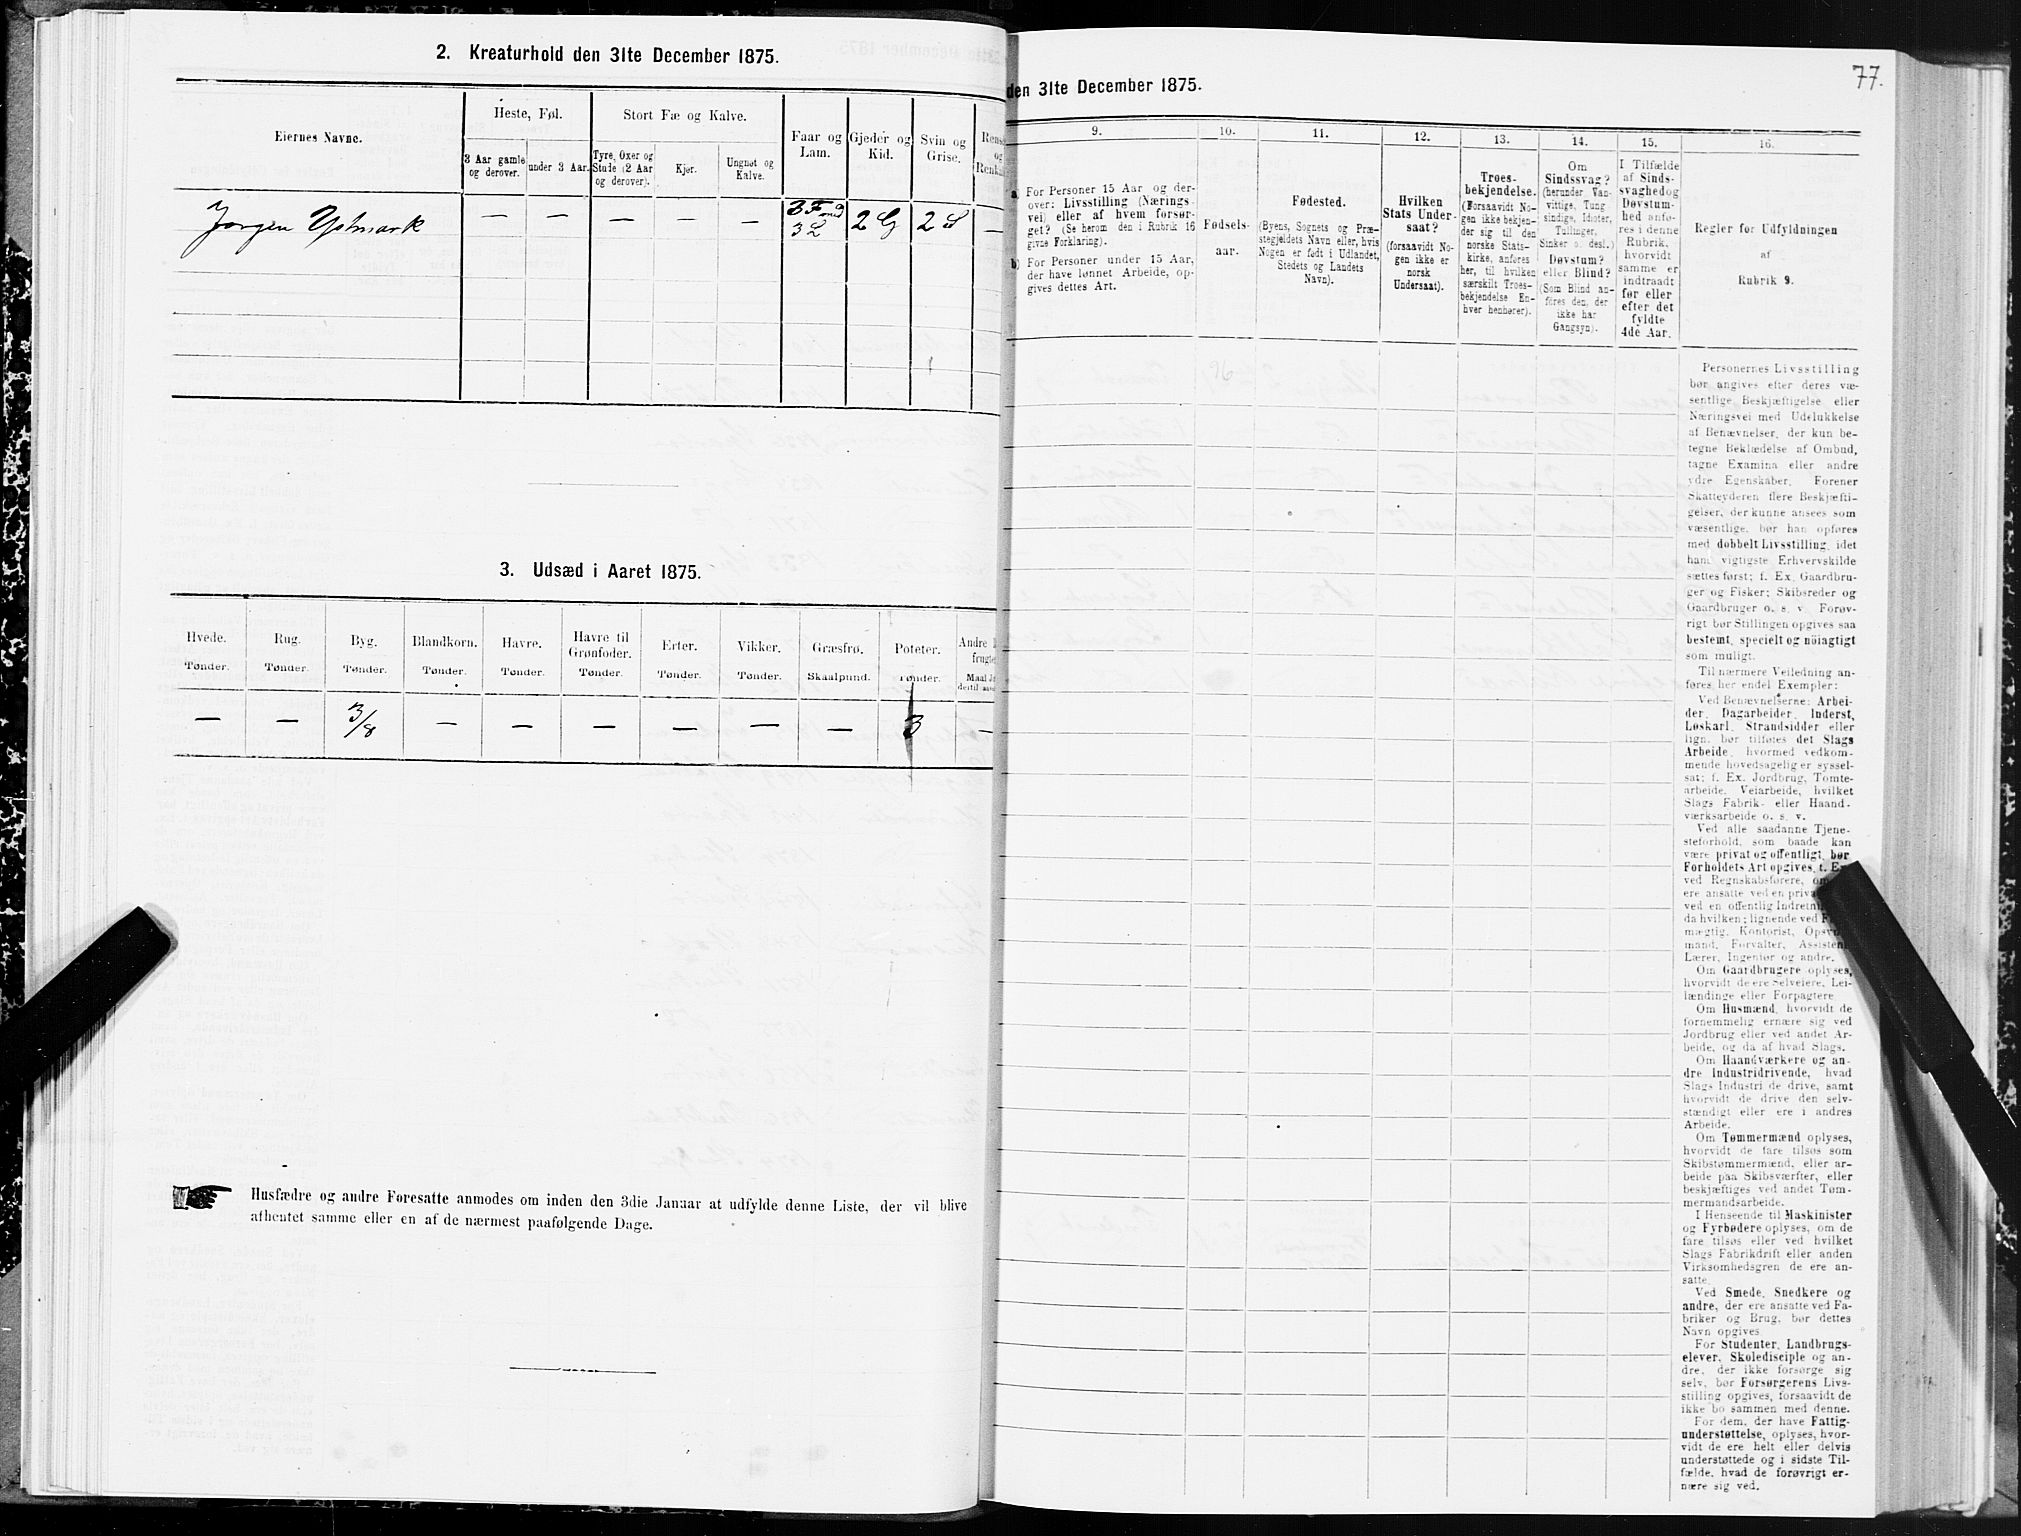 2. Kreaturhold den 31te December 1875.
Eiernes Navne.
Heste, Føl.
3 Aar gamle
og derover.
under 3 Aar.
Stort Fæ og Kalve.
Tyre, Oxer og
Stude (2 Aar
og derover).
Kjør.
Ungnøt og
Kalve.
Faar og
Lam.
Gjeder og
Kid.
Svin og
Grise.
Jørgen — — — — — 3 F 3 L 2 G 2 S —
3. Udsæd i Aaret 1875.
Hvede. Rug. Byg. Blandkorn. Havre. Havre til Grønfoder. Erter. Vikker. Græsfrø. Poteter. Andre
Tønder. Tønder. Tønder. Tønder. Tønder. Tønder. Tønder. Tønder. Skaalpund. Tønder.
— — 3/8 — — — — — — 3 —
Husfædre og andre Foresatte anmodes om inden den 3die Januar at udfylde denne Liste, der vil blive
afhentet samme eller en af de nærmest paafølgende Dage.
77.
den 31te December 1875.
9. 10. 11. 12. 13. 14. 15. 16.
a) For Personer 15 Aar og der-
over: Livsstilling (Nærings-
vei) eller af hvem forsør-
get? (Se herom den i Rubrik 16
givne Forklaring).
b) For Personer under 15 Aar,
der have lønnet Arbeide, op-
gives dettes Art.
Fødsels-
aar.
Fødested.
(Byens, Sognets og Præ-
stegjeldets Navn eller, hvis
Nogen er født i Udlandet,
Stedets og Landets
Navn).
Hvilken
Stats Under-
saat?
(forsaavidt No-
gen ikke er
norsk
Undersaat).
Troes-
bekjendelse.
(Forsaavidt No-
gen ikke bekjen-
der sig til den
norske Stats-
kirke, anføres
her, til hvilken
særskilt Troes-
bekjendelse En-
hver henhører).
Om
Sindssvag?
(herunder Van-
vittige, Tung-
sindige, Idioter,
Tullinger,
Sinker o. desl.)
Døvstum?
eller Blind?
(Som Blind an-
føres den, der
ikke har
Gangsyn).
I Tilfælde
af Sinds-
svaghed og
Døvstum-
hed anfø-
res i denne
Rubrik,
hvorvidt
samme er
indtraadt
før eller
efter det
fyldte
4de Aar.
Regler for Udfyldningen
af
Rubrik 9.
Personernes Livsstilling
bør angives efter deres væ-
sentlige Beskjæftigelse eller
Næringsvei med Udelukkelse
af Benævnelser, der kun be-
tegne Beklædelse af Ombud,
tagne Examina eller andre
ydre Egenskaber. Forener
Skatteyderen flere Beskjæfti-
gelser, der kunne ansees som
væsentlige, bør han opføres
med dobbelt Livsstilling, idet
hans vigtigste Erhvervskilde
sættes først; f. Ex. Gaardbru-
ger og Fisker; Skibsreder og
Gaardbruger o. s. v. Forøv-
rigt bør Stillingen opgives saa
bestemt, specielt og nöiagtigt
som muligt.
Til nærmere Veiledning an-
føres her endel Exempler:
Ved Benævnelserne: Arbei-
der, Dagarbeider, Inderst,
Løskarl, Strandsidder eller
lign. bør tilføies det Slags
Arbeide, hvormed vedkom-
mende hovedsagelig er syssel-
sat; f. Ex. Jordbrug, Tomte-
arbeide, Veiarbeide, hvilket
Slags Fabrik- eller Haand-
værksarbeide o. s. v.
Ved alle saadanne Tjene-
steforhold, som baade kan
være privat og offentligt, bør
Forholdets Art opgives, f. Ex.
ved Regnskabsførere,
ere ansatte ved en
ved en offentlig
da hvilken; lignende ved
mægtig, Kontorist,
mand, Forvalter,
Lærer, Ingeniør og andre.
Om Gaardbrugere oplyses,
hvorvidt de ere Selveiere, Lei-
lændinge eller Forpagtere.
Om Husmænd, hvorvidt de
fornemmelig ernære sig ved
Jordbrug eller ved andet Ar-
beide, og da af hvad Slags.
Om Haandværkere og an-
dre Industridrivende, hvad
Slags Industri de drive, samt
hvorvidt de drive den selv-
stændigt eller ere i andres
Arbeide.
Om Tømmermænd oplyses,
hvorvidt de fare tilsøs som
Skibstømmermænd, eller ar-
beide paa Skibsværfter, eller
beskjæftiges ved andet Tøm-
mermandsarbeide.
I Henseende til Maskinister
og Fyrbødere oplyses, om de
fare tilsøs eller ved hvilket
Slags Fabrikdrift eller anden
Virksomhedsgren de ere an-
satte.
Ved Smede, Snedkere og
andre, der ere ansatte ved Fa-
briker og Brug, bør dettes
Navn opgives.
For Studenter, Landbrugs-
elever, Skoledisciple og an-
dre, der ikke forsørge sig
selv, bør Forsørgerens Livs-
stilling opgives, forsaavidt de
ikke bo sammen med denne.
For dem, der have Fattig-
understøttelse, oplyses, hvor-
vidt de ere helt eller delvis
understøttede og i sidste Til-
fælde, hvad de forøvrigt er-
nære sig ved.